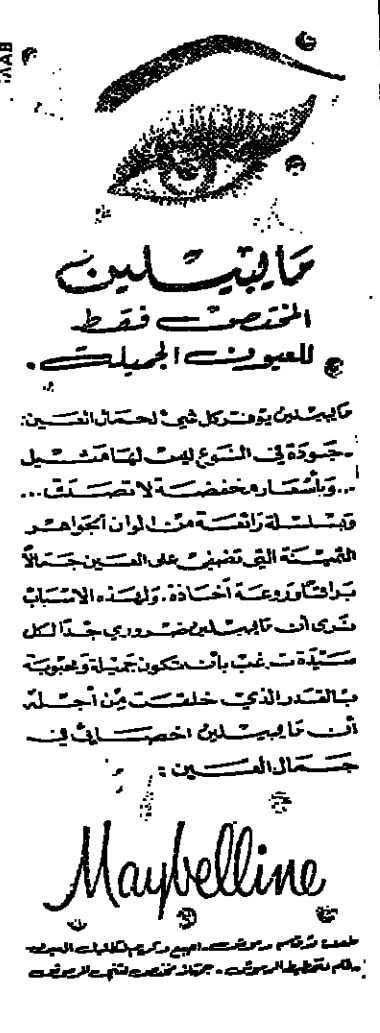 مايبيلين
المختصة فقط
للعيون الجميلة.
مايبيلين يوفر كل شيء لجمال العين:
.جودة في النوع ليس لها مثيل
..وبأسعار مخفضة لا تصدق...
وبسلسلة رائعة من الوان الجواهر
الثمينة التي تضفي على العين جمالاً
براقاً وروعة أخاذة. ولهذه الاسباب
نرى أن مايبيلين ضروري جداً لكل
سيدة ترغب بأن تكون جميلة ومحبوبة
بالقدر الذي خلقت من أجله
أن مايبيلين اخصائي في
جمال العين:
Maybelline